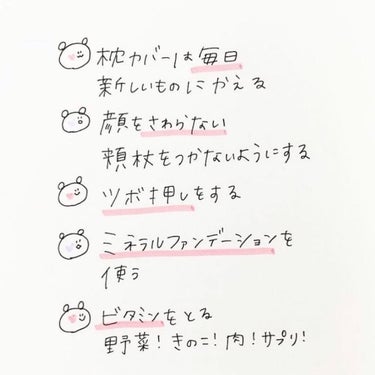 枕カバーは毎日
新しいものにかえる
顔をさわらない
頬杖をつかないようにする
ツボ押しをする
ミネラルファンデーションを
使う
ビタミンをとる
野菜!きのこ!肉!サプリ!